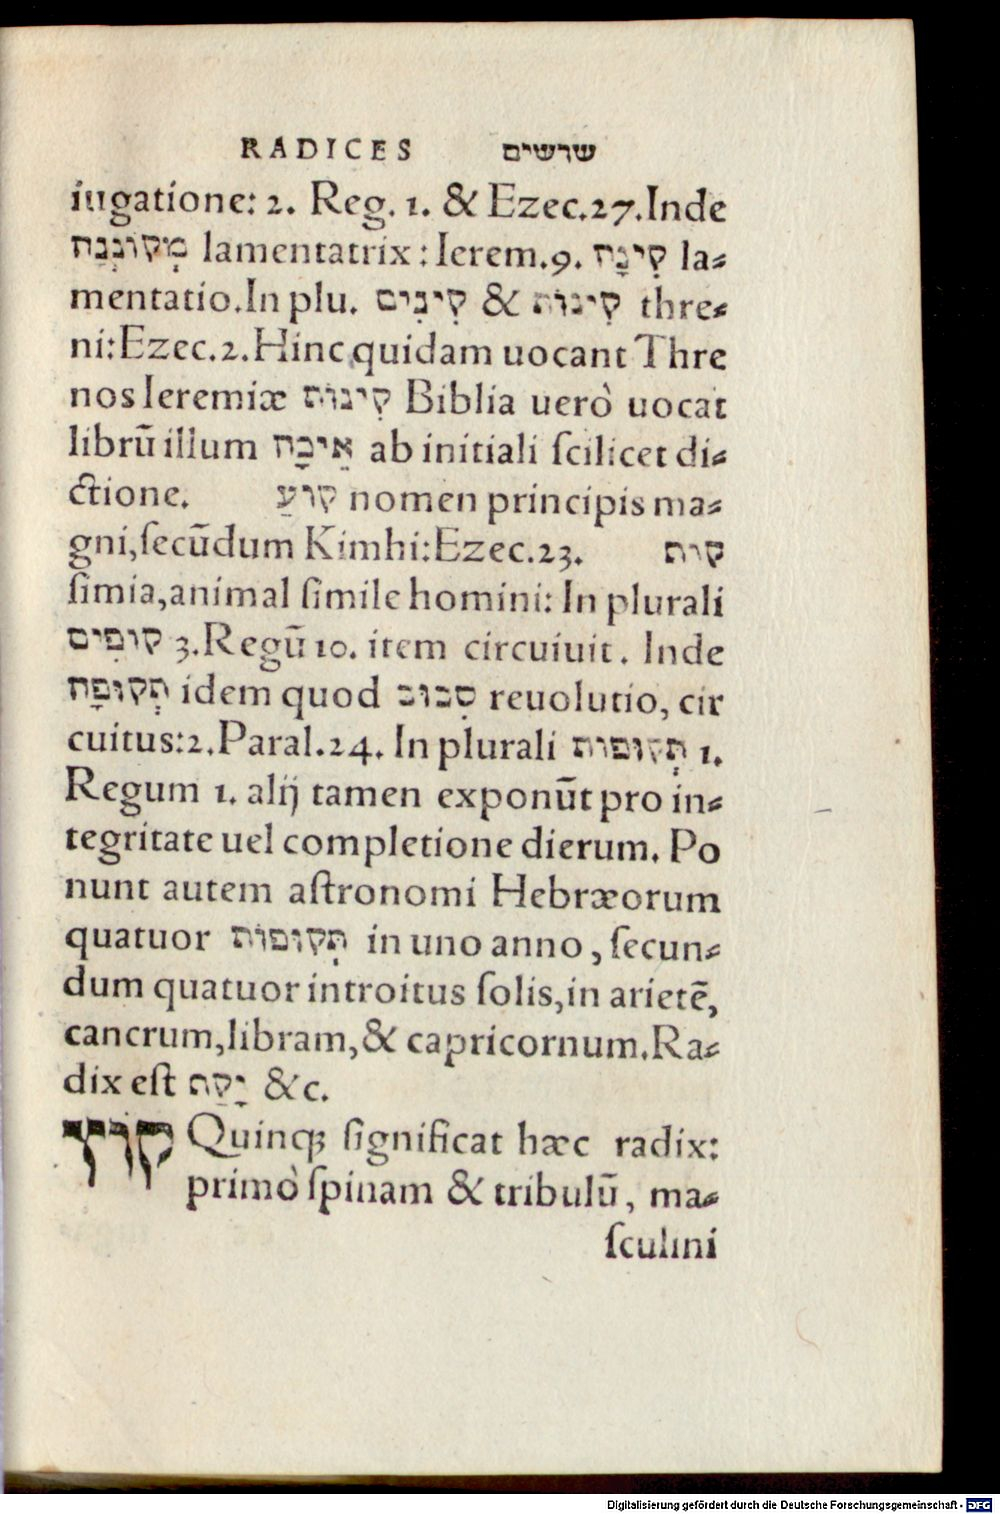 RADICES שרשים
iugatione: 2. Reg. 1. & Ezec.27.Inde
מְקוֹנְנָה lamentatrix: Ierem.9. קִינָה la⸗
mentatio.In plu. קִינִים & קִינוֹת thre⸗
ni:Ezec.2.Hinc quidam uocant Thre
nos Ieremiæ קִינוֹת Biblia uerò uocat
librū illum אֵיכָה ab initiali ſcilicet di⸗
ctione. קוֹעַ nomen principis ma⸗
gni,ſecūdum Kimhi:Ezec.23. קוף
ſimia,animal ſimile homini: In plurali
קוֹפִים 3.Regū 10. item circuiuit. Inde
תְּקוּפָה idem quod סְבוּב reuolutio, cir
cuitus:2.Paral.24. In plurali תְּקוּפוֹת 1.
Regum 1. alij tamen exponūt pro in⸗
tegritate uel completione dierum. Po
nunt autem aſtronomi Hebræorum
quatuor תְּקוּפוֹת in uno anno, ſecun⸗
dum quatuor introitus ſolis,in arietē,
cancrum,libram,& capricornum.Ra⸗
dix eſt יָקַף &c.
קוץ Quinq; ſignificat hæc radix:
primò ſpinam & tribulū, ma⸗
ſculini
Digitalisierung gefördert durch die Deutsche Forschungsgemeinschaft - DFG